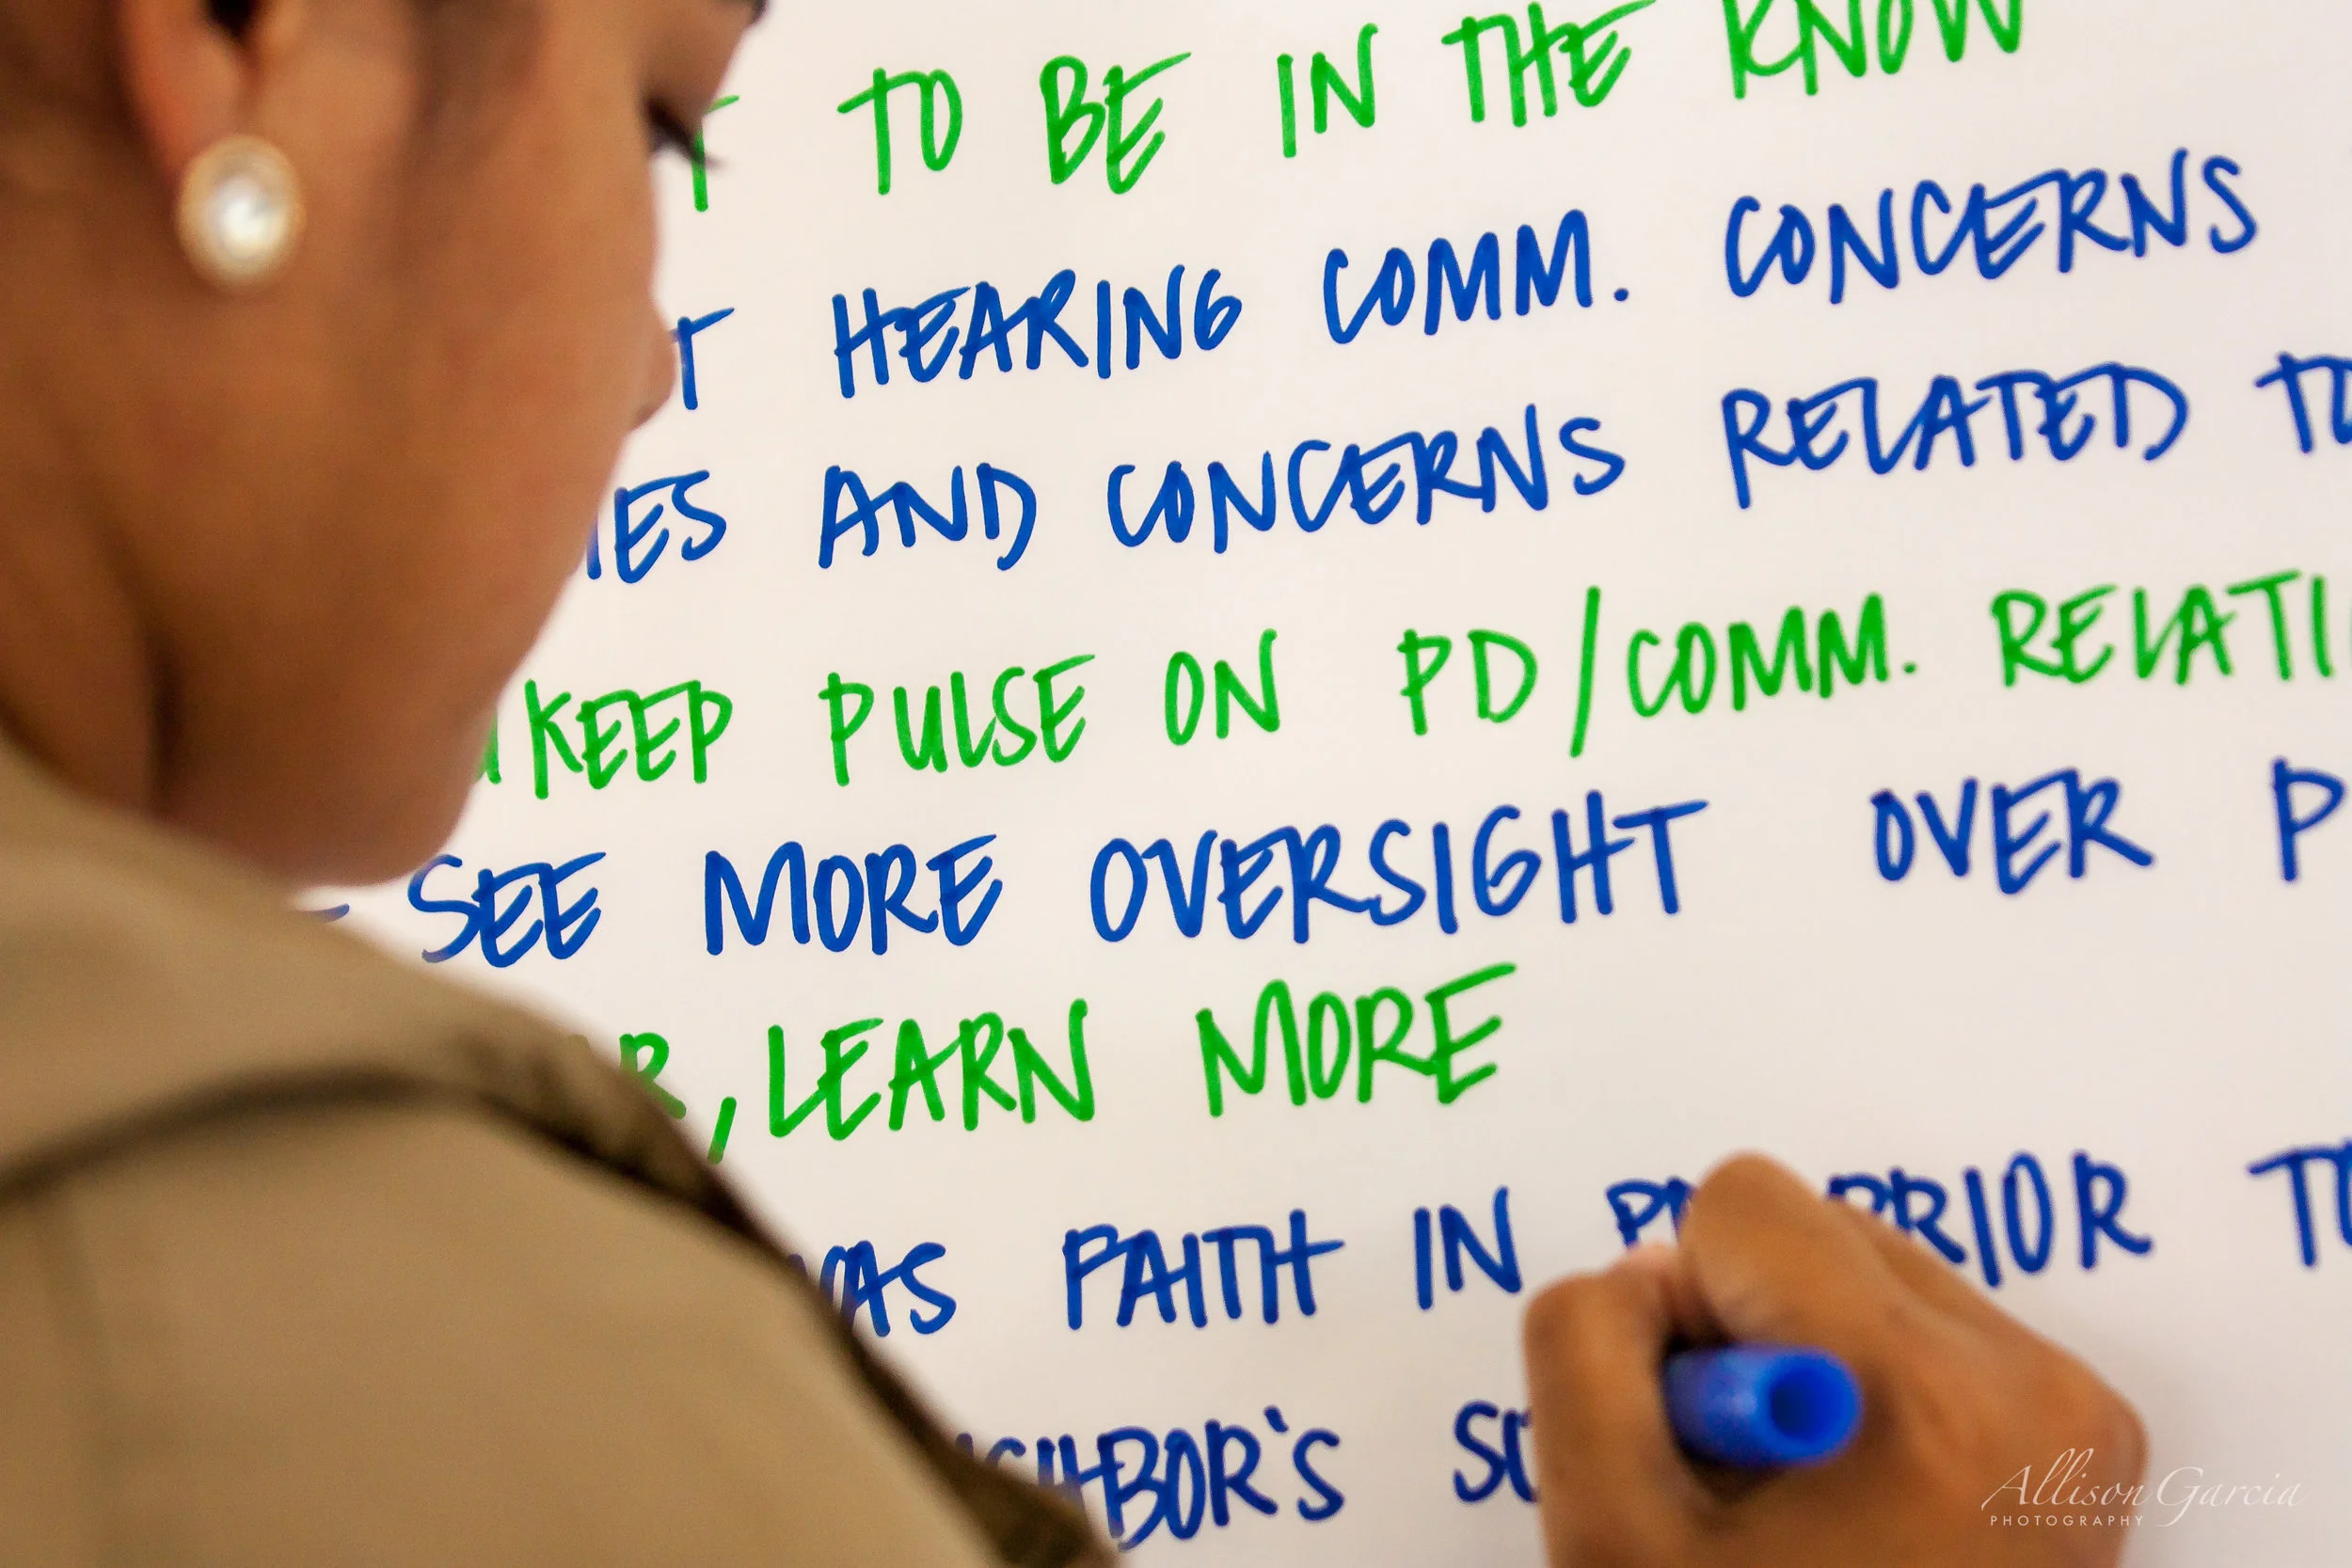 TO BE IN THE KNOW
HEARING COMM. CONCERNS
AND CONCERNS RELATED TO
KEEP PULSE ON PD/COMM. RELATI
SEE MORE OVERSIGHT OVER P
, LEARN MORE
FAITH IN PRIOR TO
NEIGHBOR'S
Allison Garcia
PHOTOGRAPHY